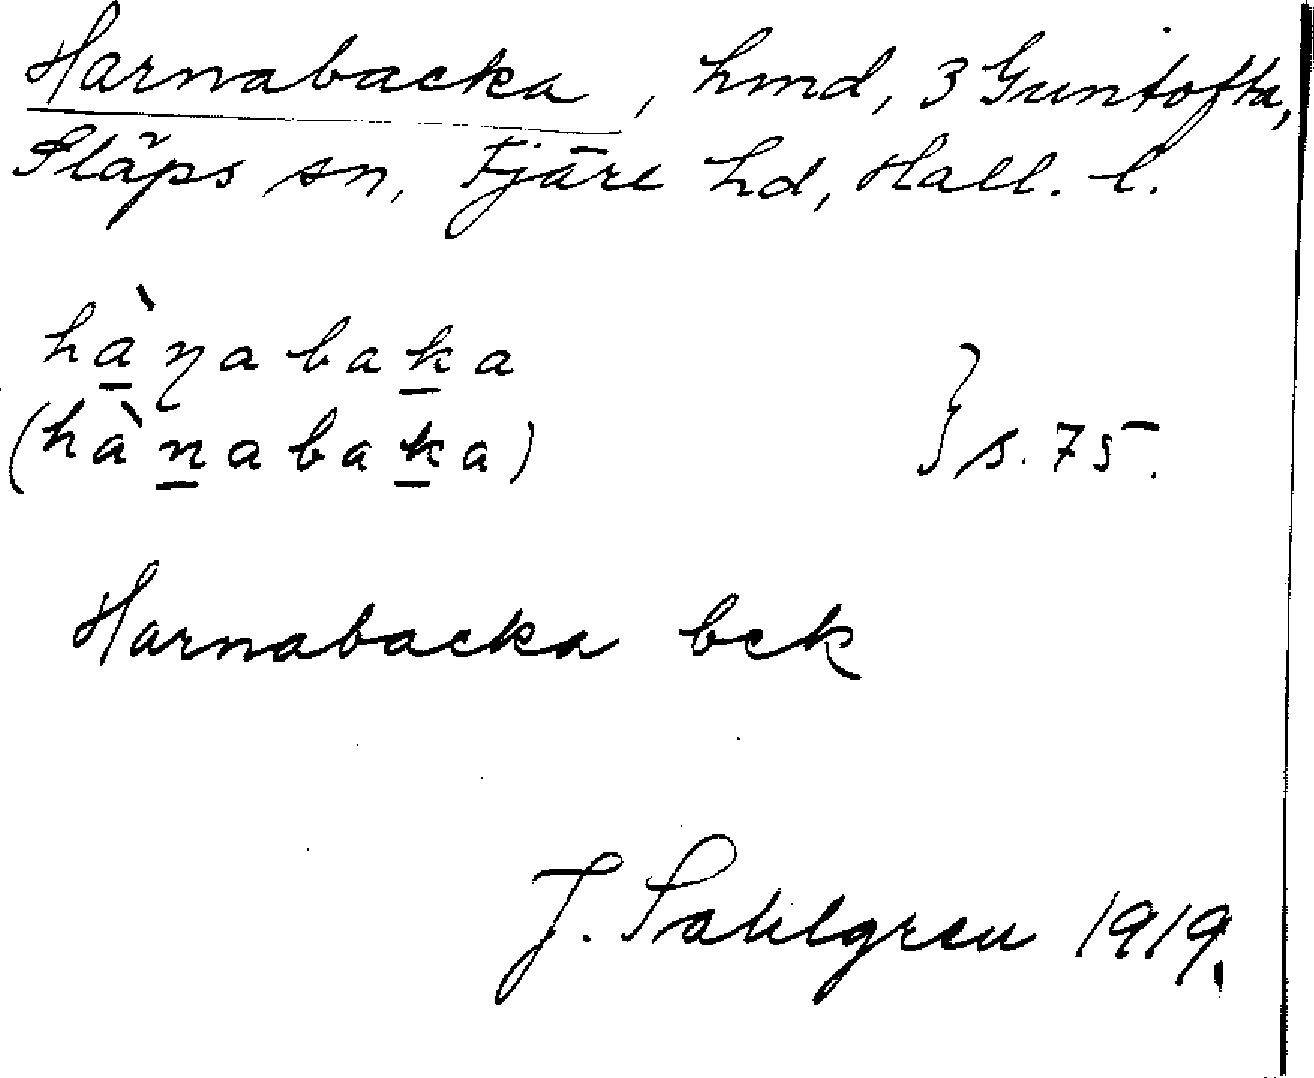 Harnabacka, hmd, 3 Guntofta,
Släps sn, Fjäre hd, Hall. l.
hàɳabaka
(hànabaka) } s. 75.
Harnabacka bck
J. Sahlgren 1919.